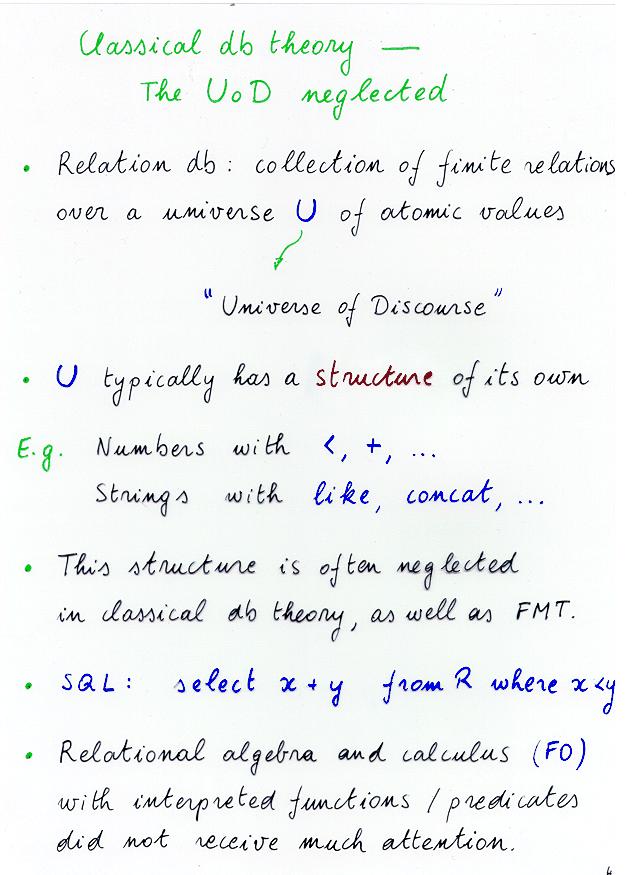 Classical db theory —
The UoD neglected
• Relation db: collection of finite relations
over a universe U of atomic values
"Universe of Discourse"
• U typically has a structure of its own
E.g. Numbers with <, +, ...
Strings with like, concat, ...
• This structure is often neglected
in classical db theory, as well as FMT.
• SQL: select x + y from R where x < y
• Relational algebra and calculus (FO)
with interpreted functions / predicates
did not receive much attention.